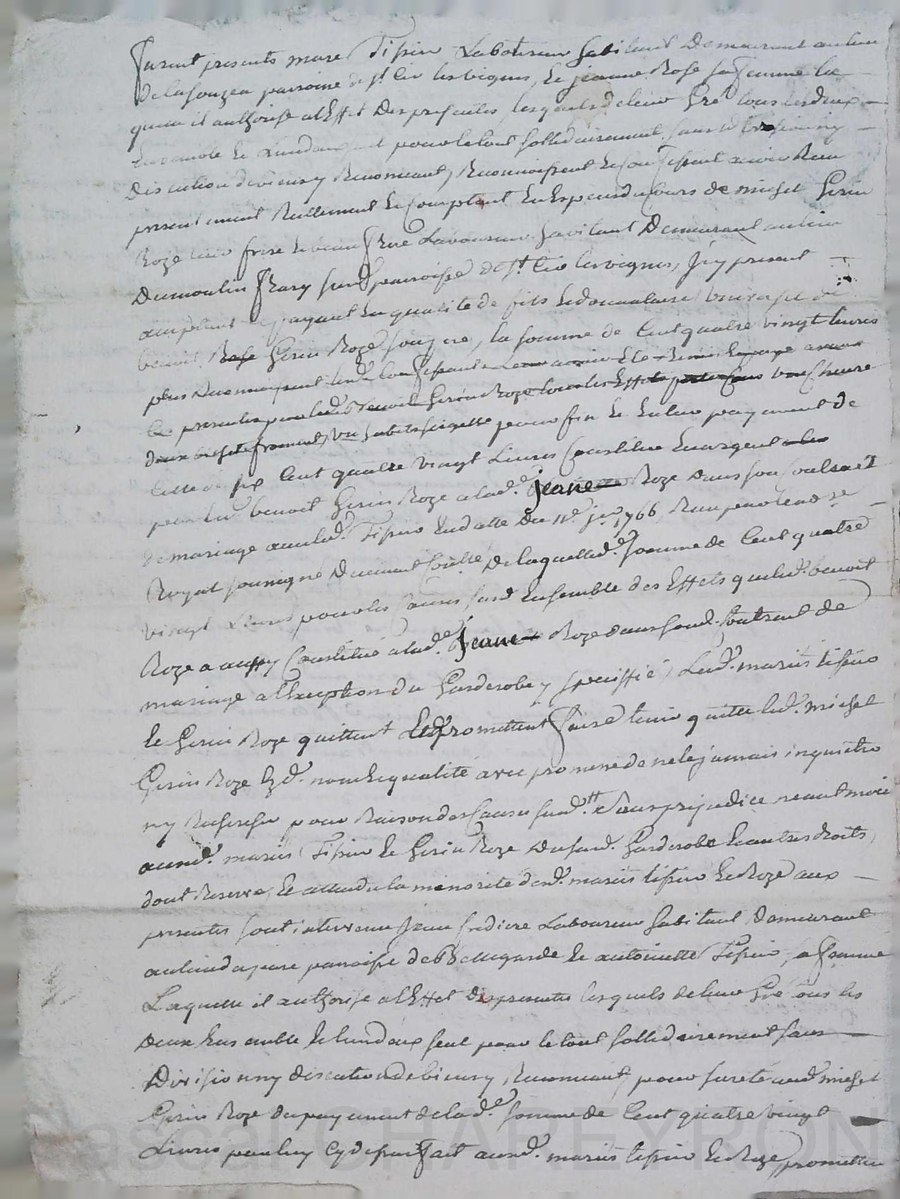 furent presents marc Tissier Laboureur habitant Demeurant au lieu
Delafouzea paroisse de st Cir les vignes, Le jeanne Roze sa femme la
quelle il authorise a l'Effet Des presentes lesquels de leur Gré tous les deux
Ensemble Le Lun deux seul pour le tout sollidairement sans division ny
Discution de biens y Renonceant, Reconnoissent Et Confessent avoir Reçu
presentement Reellement Le Comptant En Especes du Cours de michel Gerin
Roze leur frere Le beau frere Laboureur habitant Demeurant au lieu
Dumoulin paroisse de st Cir les vignes, Icy present
acceptant payant En qualité de fils Le donnataire universel de
benoit Roze Gerin Roze son pere, la somme de Cent quatre vingt livres
plus
benoit Gerin Roze tous les Effets
pour fin Le Entier payement de
Cent quatre vingt Livres Constituée En argent
par led. benoit Gerin Roze a lad.e jeane Roze Dans son Contract
de mariage avec led. Tissier En datte Du 11e jer 1766, Reçu par
Royat soussigné De laquelle d.e somme de Cent quatre
vingt Livres pour les causes susd Ensemble des Effets que led. benoit
Roze a aussy Constitué a lad.e jeane Roze dans sond. Contract de
mariage a l'Exception du Garderobe y speciffié, Lesd. mariés tissier
Le Gerin Roze quittent Et promettent faire tenir quitte led. michel
Gerin Roze Esd. nom Le qualité avec promesse de ne le jamais inquietter
ny Rechercher pour Raison des Causes susd.tes sans prejudice neantmoins
auxd. mariés Tissier Le Gerin Roze Dususd. Garderobe Le autres droits,
dont Reserve, Le attendu la minorité desd. mariés tissier Le Roze aux
presentes sont intervenu jean Laboureur habitant Demeurant
au lieu paroisse de Bellegarde Le antoinette Tissier, sa femme
Laquelle il authorise a l'Effet des presentes lesquels de leur Gré tous les
Deux Ensemble Le lun deux seul pour le tout sollidairement sans
Division ny discution de biens y Renonceant, pour sureté aud. michel
Gerin Roze du payement de lad.e somme de Cent quatre vingt
Livres par luy Cy dessus fait auxd. mariés tissier Le Roze promettent
Pascal CHAREYRON